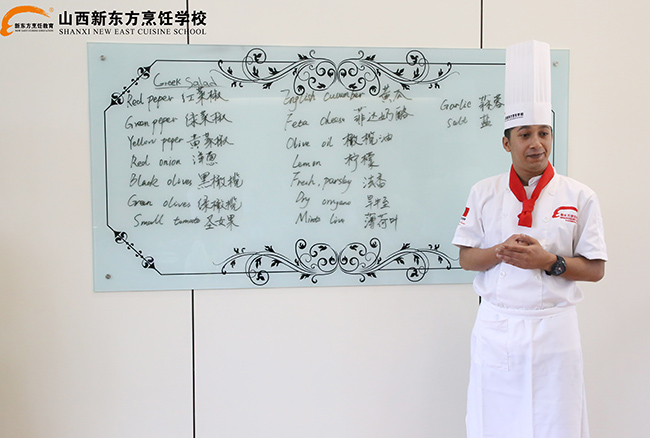 山西新东方烹饪学校
SHANXI NEW EAST CUISINE SCHOOL
新东方烹饪教育
Greek Salad
Red peper 红菜椒
Green peper 绿菜椒
Yellow peper 黄菜椒
Red onion 洋葱
Blank olives 黑橄榄
Green olives 绿橄榄
Small tomato 圣女果
English cucumber 黄瓜
Feta chean 菲达奶酪
Olive oil 橄榄油
Lemon 柠檬
Fresh, parsby 法香
Dry oregano
Mints live 薄荷叶
Garlic
Salt 盐